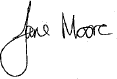 Jane Moore